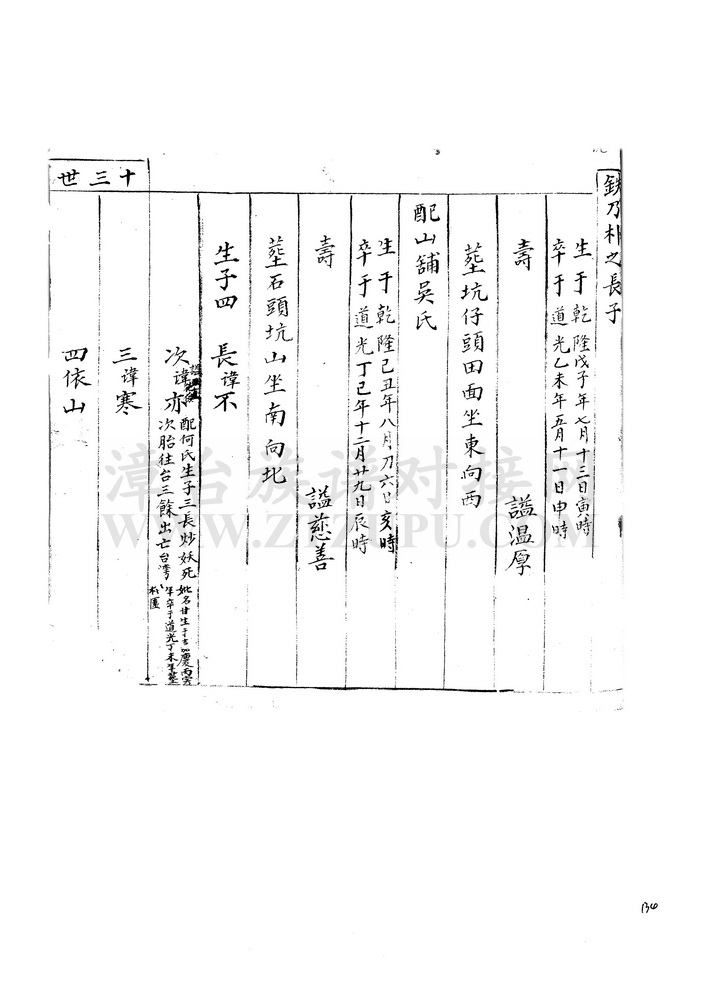 鉄乃朴之長子
生于乾隆戊子年七月十三日寅時
卒于道光乙未年五月十一日申時
壽 諡温厚
塟坑仔頭田面坐東向西
配山舖吳氏
生于乾隆己丑年八月刀六日亥時
卒于道光丁巳年十二月廿九日辰時
壽 諡慈善
塟石頭坑山坐南向北
生子四 長諱不
次諱亦 配何氏生子三長炒妖死
次胎往台三餘出亡台灣
妣名甘生于嘉慶丙寅
年卒于道光丁未年塟
三諱寒
四依山
十三世
漳台族谱对接
WWW.ZTZUPU.COM
134